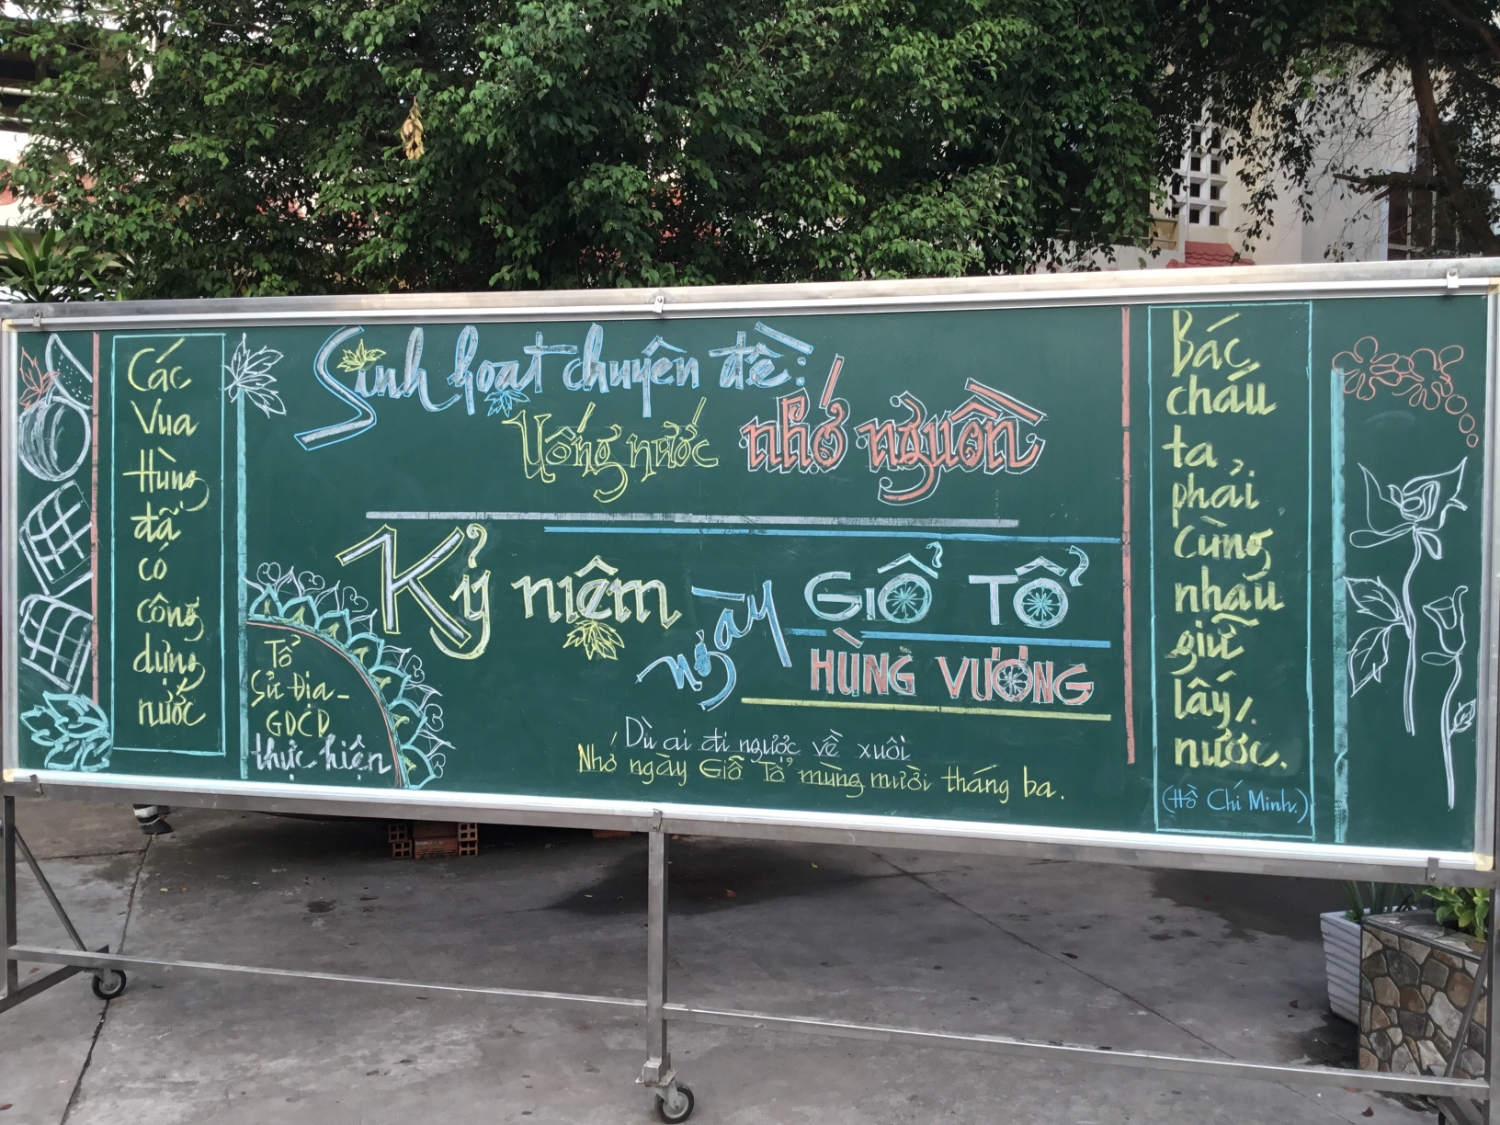 Các
Vua
Hùng
đã
có
công
dựng
nước
Sinh hoạt chuyên đề:
Uống nước nhớ nguồn
Kỷ niệm ngày GIỖ TỔ
HÙNG VƯƠNG
Tổ
Sử Địa-
GDCD
thực hiện
Dù ai đi ngược về xuôi
Nhớ ngày Giỗ Tổ mùng mười tháng ba.
Bác
cháu
ta
phải
Cùng
nhau
giữ
lấy
nước.
(Hồ Chí Minh.)